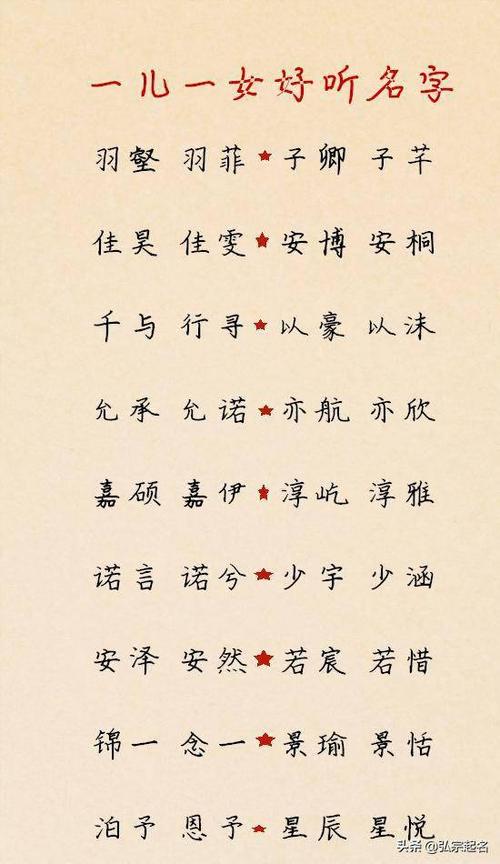 一儿一女好听名字
羽壑 羽菲★子卿 子芊
佳昊 佳雯★安博 安桐
千与 行寻★以豪 以沫
允承 允诺★亦航 亦欣
嘉硕 嘉伊★淳屹 淳雅
诺言 诺兮★少宇 少涵
安泽 安然★若宸 若惜
锦一 念一★景瑜 景恬
泊予 恩予★星辰 星悦
头条 @弘宗起名